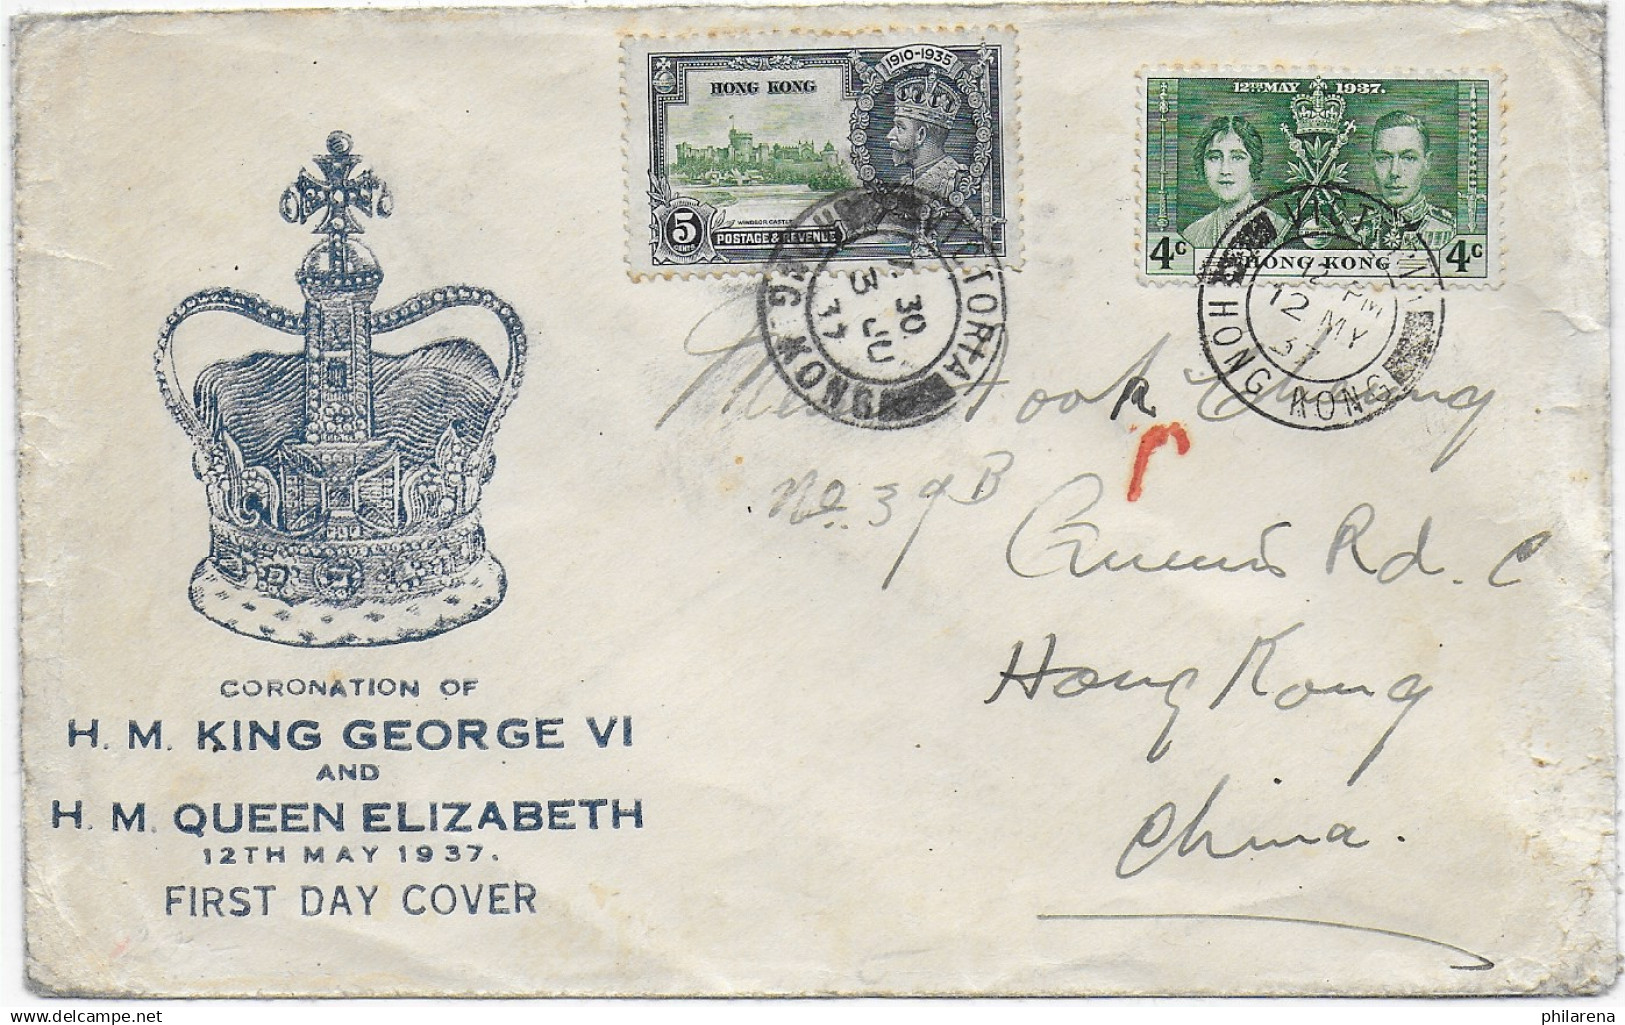 1910-1935
HONG KONG
WINDSOR CASTLE
5
CENTS
POSTAGE & REVENUE
12TH MAY 1937.
4c HONG KONG 4c
VICTORIA
HONG KONG
30
JU
37
VICTORIA
PM
12 MY
37
HONG KONG
Hook Chung
No. 39B
Queen's Rd. C
Hong Kong
China.
CORONATION OF
H. M. KING GEORGE VI
AND
H. M. QUEEN ELIZABETH
12TH MAY 1937.
FIRST DAY COVER
philarena